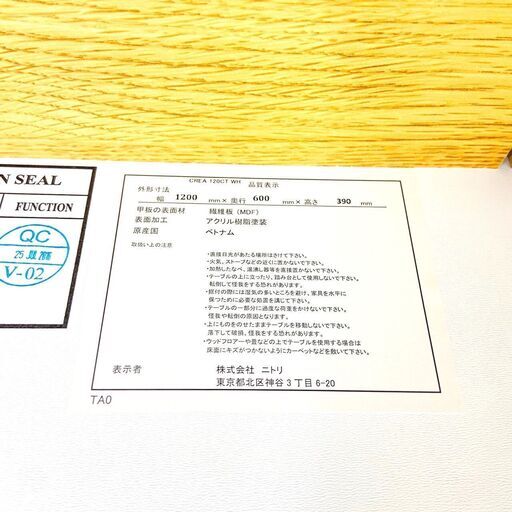 N SEAL
FUNCTION
QC
V-02
CREA 120CT WH 品質表示
外形寸法
幅 1200 mm× 奥行 600 mm× 高さ 390 mm
甲板の表面材 繊維板 (MDF)
表面加工 アクリル樹脂塗装
原産国 ベトナム
取扱い上の注意
・直接日光があたる場所はさけて下さい。
・火気、ストーブなどの近くに置かないで下さい。
・加熱したなべ、湯沸し器等を直接置かないで下さい。
・テーブルの上に立ったり、踏み台として使用しないで下さい。
転倒して怪我をする恐れがあります。
・据付の際には湿気の多いところを避け、家具を水平に
保つために必要な処置を講じて下さい。
・テーブルの一部分に過度な荷重をかけないで下さい。
怪我や転倒の原因となります。
・上にものをのせたままテーブルを移動しないで下さい。
落下して破損、怪我をする恐れがあります。
・ウッドフローアや畳などの上でテーブルを使用する場合は
床面にキズがつかないようにカーペットなどを敷いて下さい。
表示者 株式会社 ニトリ
東京都北区神谷3丁目6-20
TA0